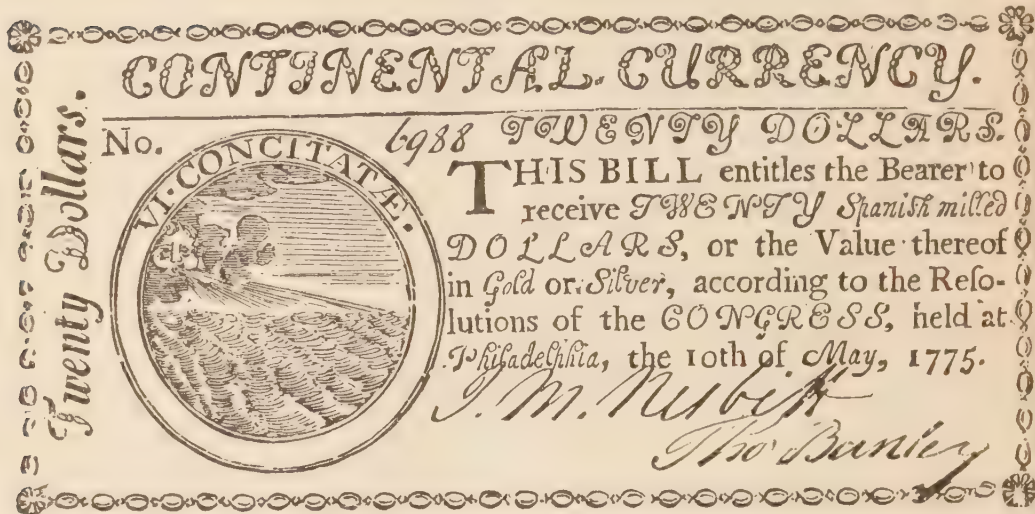 CONTINENTAL CURRENCY.
Twenty Dollars.
No. 6988 TWENTY DOLLARS.
VI·CONCITATÆ.
THIS BILL entitles the Bearer to
receive TWENTY Spanish milled
DOLLARS, or the Value thereof
in Gold or Silver, according to the Reſo-
lutions of the CONGRESS, held at
Philadelphia, the 10th of May, 1775.
J. M. Nesbitt
Tho Barclay